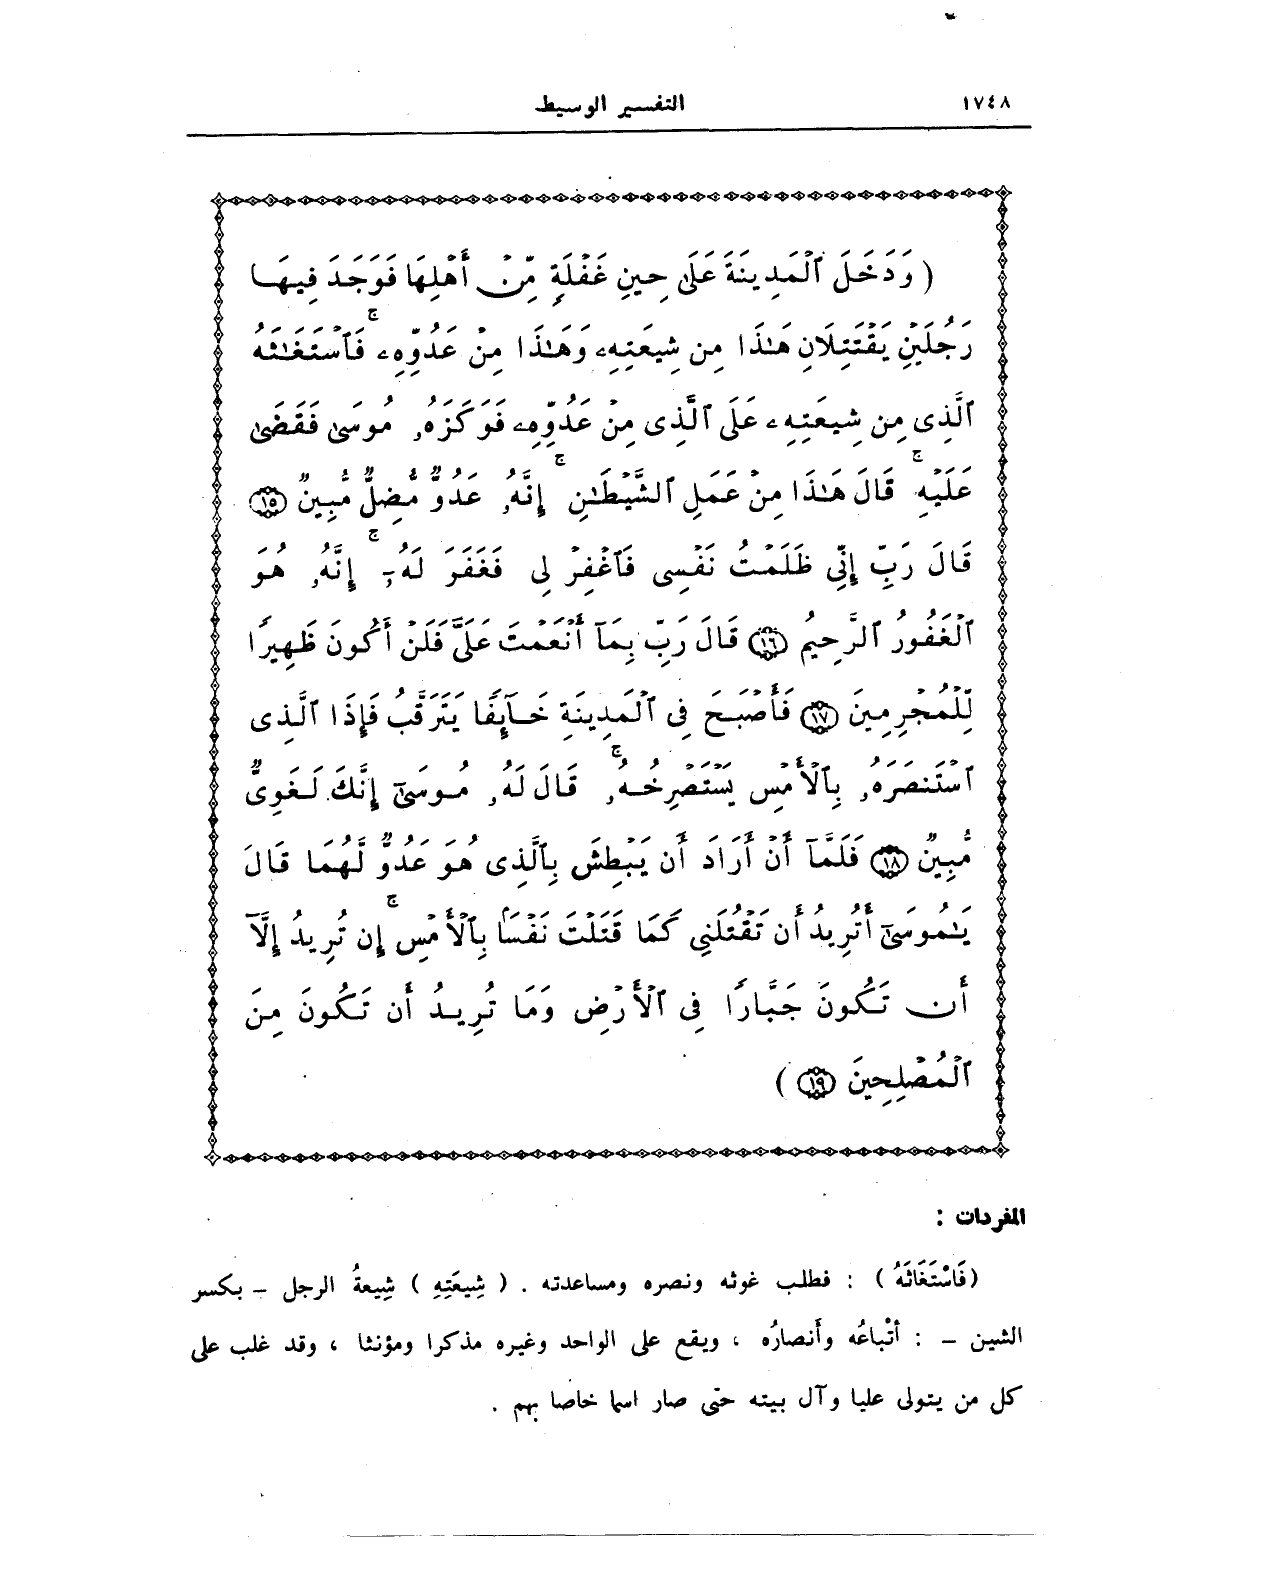 ١٧٤٨ التفسير الوسيط
( وَدَخَلَ ٱلْمَدِينَةَ عَلَىٰ حِينِ غَفْلَةٍ مِّنْ أَهْلِهَا فَوَجَدَ فِيهَا
رَجُلَيْنِ يَقْتَتِلَانِ هَـٰذَا مِن شِيعَتِهِۦ وَهَـٰذَا مِنْ عَدُوِّهِۦ ۖ فَٱسْتَغَـٰثَهُ
ٱلَّذِى مِن شِيعَتِهِۦ عَلَى ٱلَّذِى مِنْ عَدُوِّهِۦ فَوَكَزَهُۥ مُوسَىٰ فَقَضَىٰ
عَلَيْهِ ۚ قَالَ هَـٰذَا مِنْ عَمَلِ ٱلشَّيْطَـٰنِ ۚ إِنَّهُۥ عَدُوٌّ مُّضِلٌّ مُّبِينٌ ﴿١٥﴾
قَالَ رَبِّ إِنِّى ظَلَمْتُ نَفْسِى فَٱغْفِرْ لِى فَغَفَرَ لَهُۥٓ ۚ إِنَّهُۥ هُوَ
ٱلْغَفُورُ ٱلرَّحِيمُ ﴿١٦﴾ قَالَ رَبِّ بِمَآ أَنْعَمْتَ عَلَىَّ فَلَنْ أَكُونَ ظَهِيرًا
لِّلْمُجْرِمِينَ ﴿١٧﴾ فَأَصْبَحَ فِى ٱلْمَدِينَةِ خَآئِفًا يَتَرَقَّبُ فَإِذَا ٱلَّذِى
ٱسْتَنصَرَهُۥ بِٱلْأَمْسِ يَسْتَصْرِخُهُۥ ۚ قَالَ لَهُۥ مُوسَىٰٓ إِنَّكَ لَغَوِىٌّ
مُّبِينٌ ﴿١٨﴾ فَلَمَّآ أَنْ أَرَادَ أَن يَبْطِشَ بِٱلَّذِى هُوَ عَدُوٌّ لَّهُمَا قَالَ
يَـٰمُوسَىٰٓ أَتُرِيدُ أَن تَقْتُلَنِى كَمَا قَتَلْتَ نَفْسًۢا بِٱلْأَمْسِ ۚ إِن تُرِيدُ إِلَّآ
أَن تَكُونَ جَبَّارًا فِى ٱلْأَرْضِ وَمَا تُرِيدُ أَن تَكُونَ مِنَ
ٱلْمُصْلِحِينَ ﴿١٩﴾ )
المفردات :
(فَاسْتَغَاثَهُ ) : فطلب غوثه ونصره ومساعدته . ( شِيعَتِهِ ) شِيعةُ الرجل – بكسر
الشين – : أتْباعُه وأنصارُه ، ويقع على الواحد وغيره مذكرا ومؤنثا ، وقد غلب على
كل من يتولى عليا وآل بيته حتى صار اسما خاصا بهم .